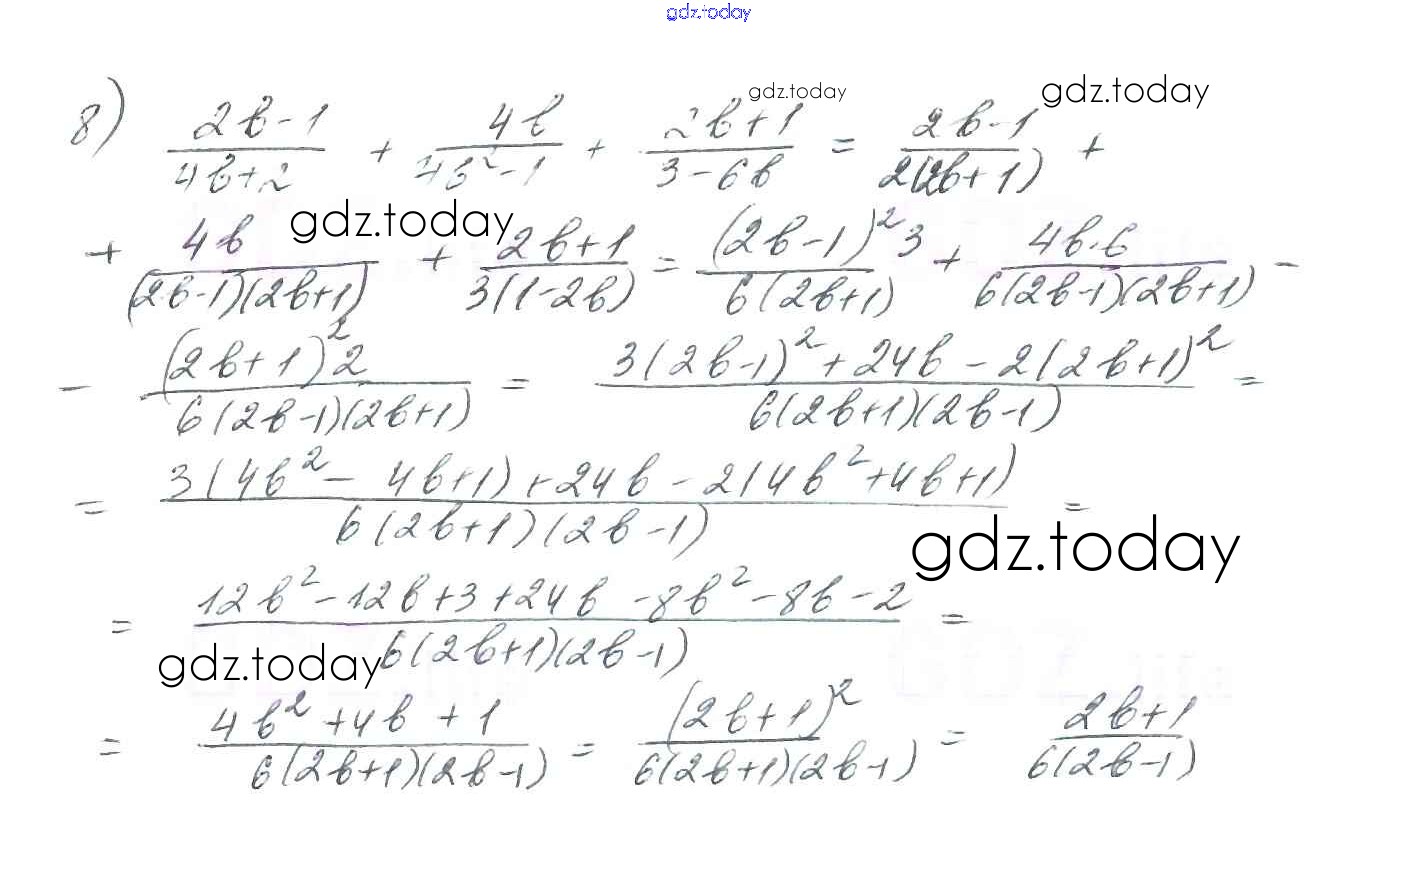 gdz.today
8) (2b-1)/(4b+2) + 4b/(4b²-1) + (2b+1)/(3-6b) = (2b-1)/(2(2b+1)) +
gdz.today
gdz.today
+ 4b/((2b-1)(2b+1)) + (2b+1)/(3(1-2b)) = (2b-1)²3/(6(2b+1)) + 4b·6/(6(2b-1)(2b+1)) -
gdz.today
- (2b+1)²2/(6(2b-1)(2b+1)) = (3(2b-1)²+24b-2(2b+1)²)/(6(2b+1)(2b-1)) =
= (3(4b²-4b+1)+24b-2(4b²+4b+1))/(6(2b+1)(2b-1)) =
gdz.today
= (12b²-12b+3+24b-8b²-8b-2)/(6(2b+1)(2b-1)) =
gdz.today
= (4b²+4b+1)/(6(2b+1)(2b-1)) = (2b+1)²/(6(2b+1)(2b-1)) = (2b+1)/(6(2b-1))